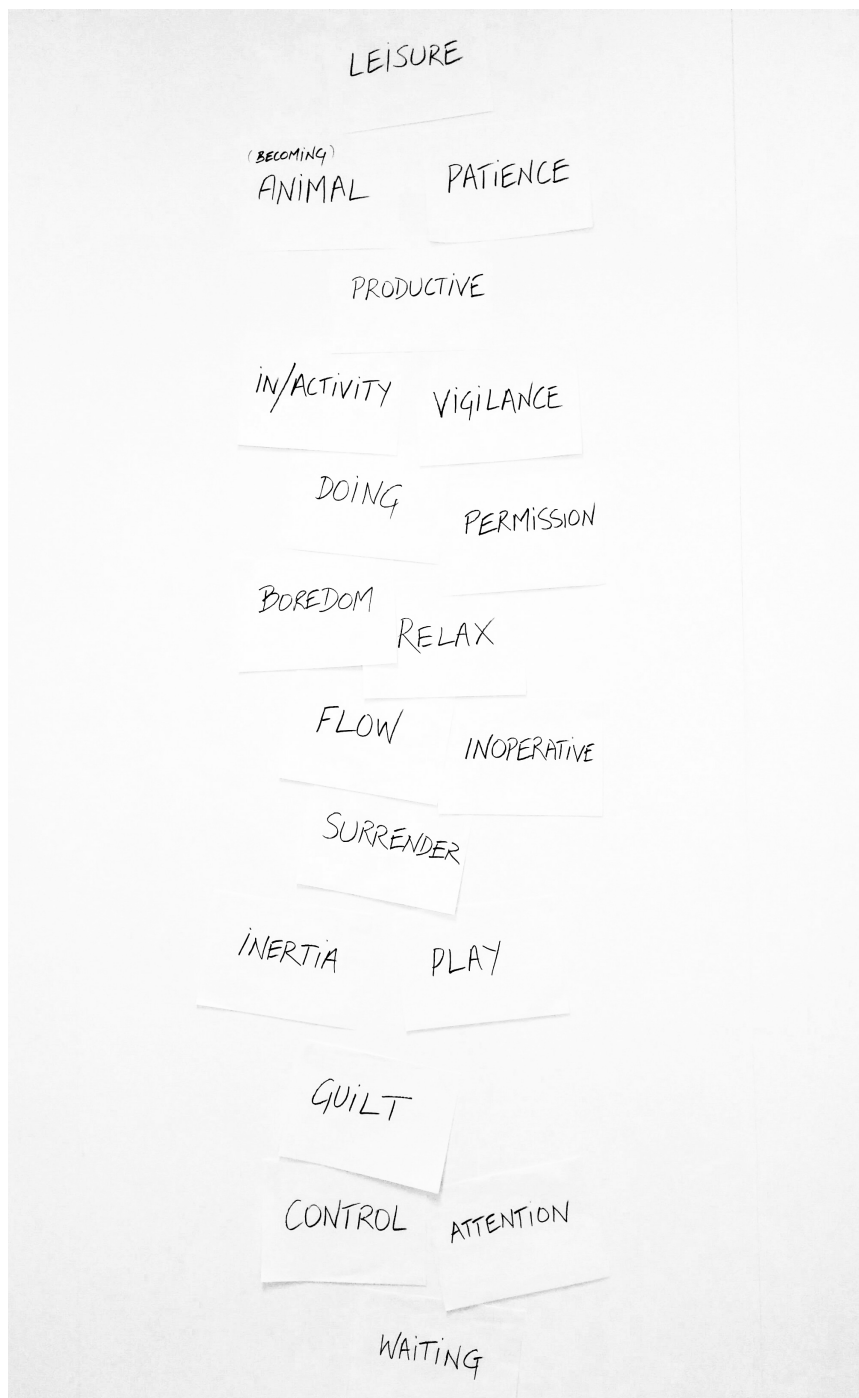 LEISURE
(BECOMING)
ANIMAL
PATIENCE
PRODUCTIVE
IN/ACTIVITY
VIGILANCE
DOING
PERMISSION
BOREDOM
RELAX
FLOW
INOPERATIVE
SURRENDER
INERTIA
PLAY
GUILT
CONTROL
ATTENTION
WAITING